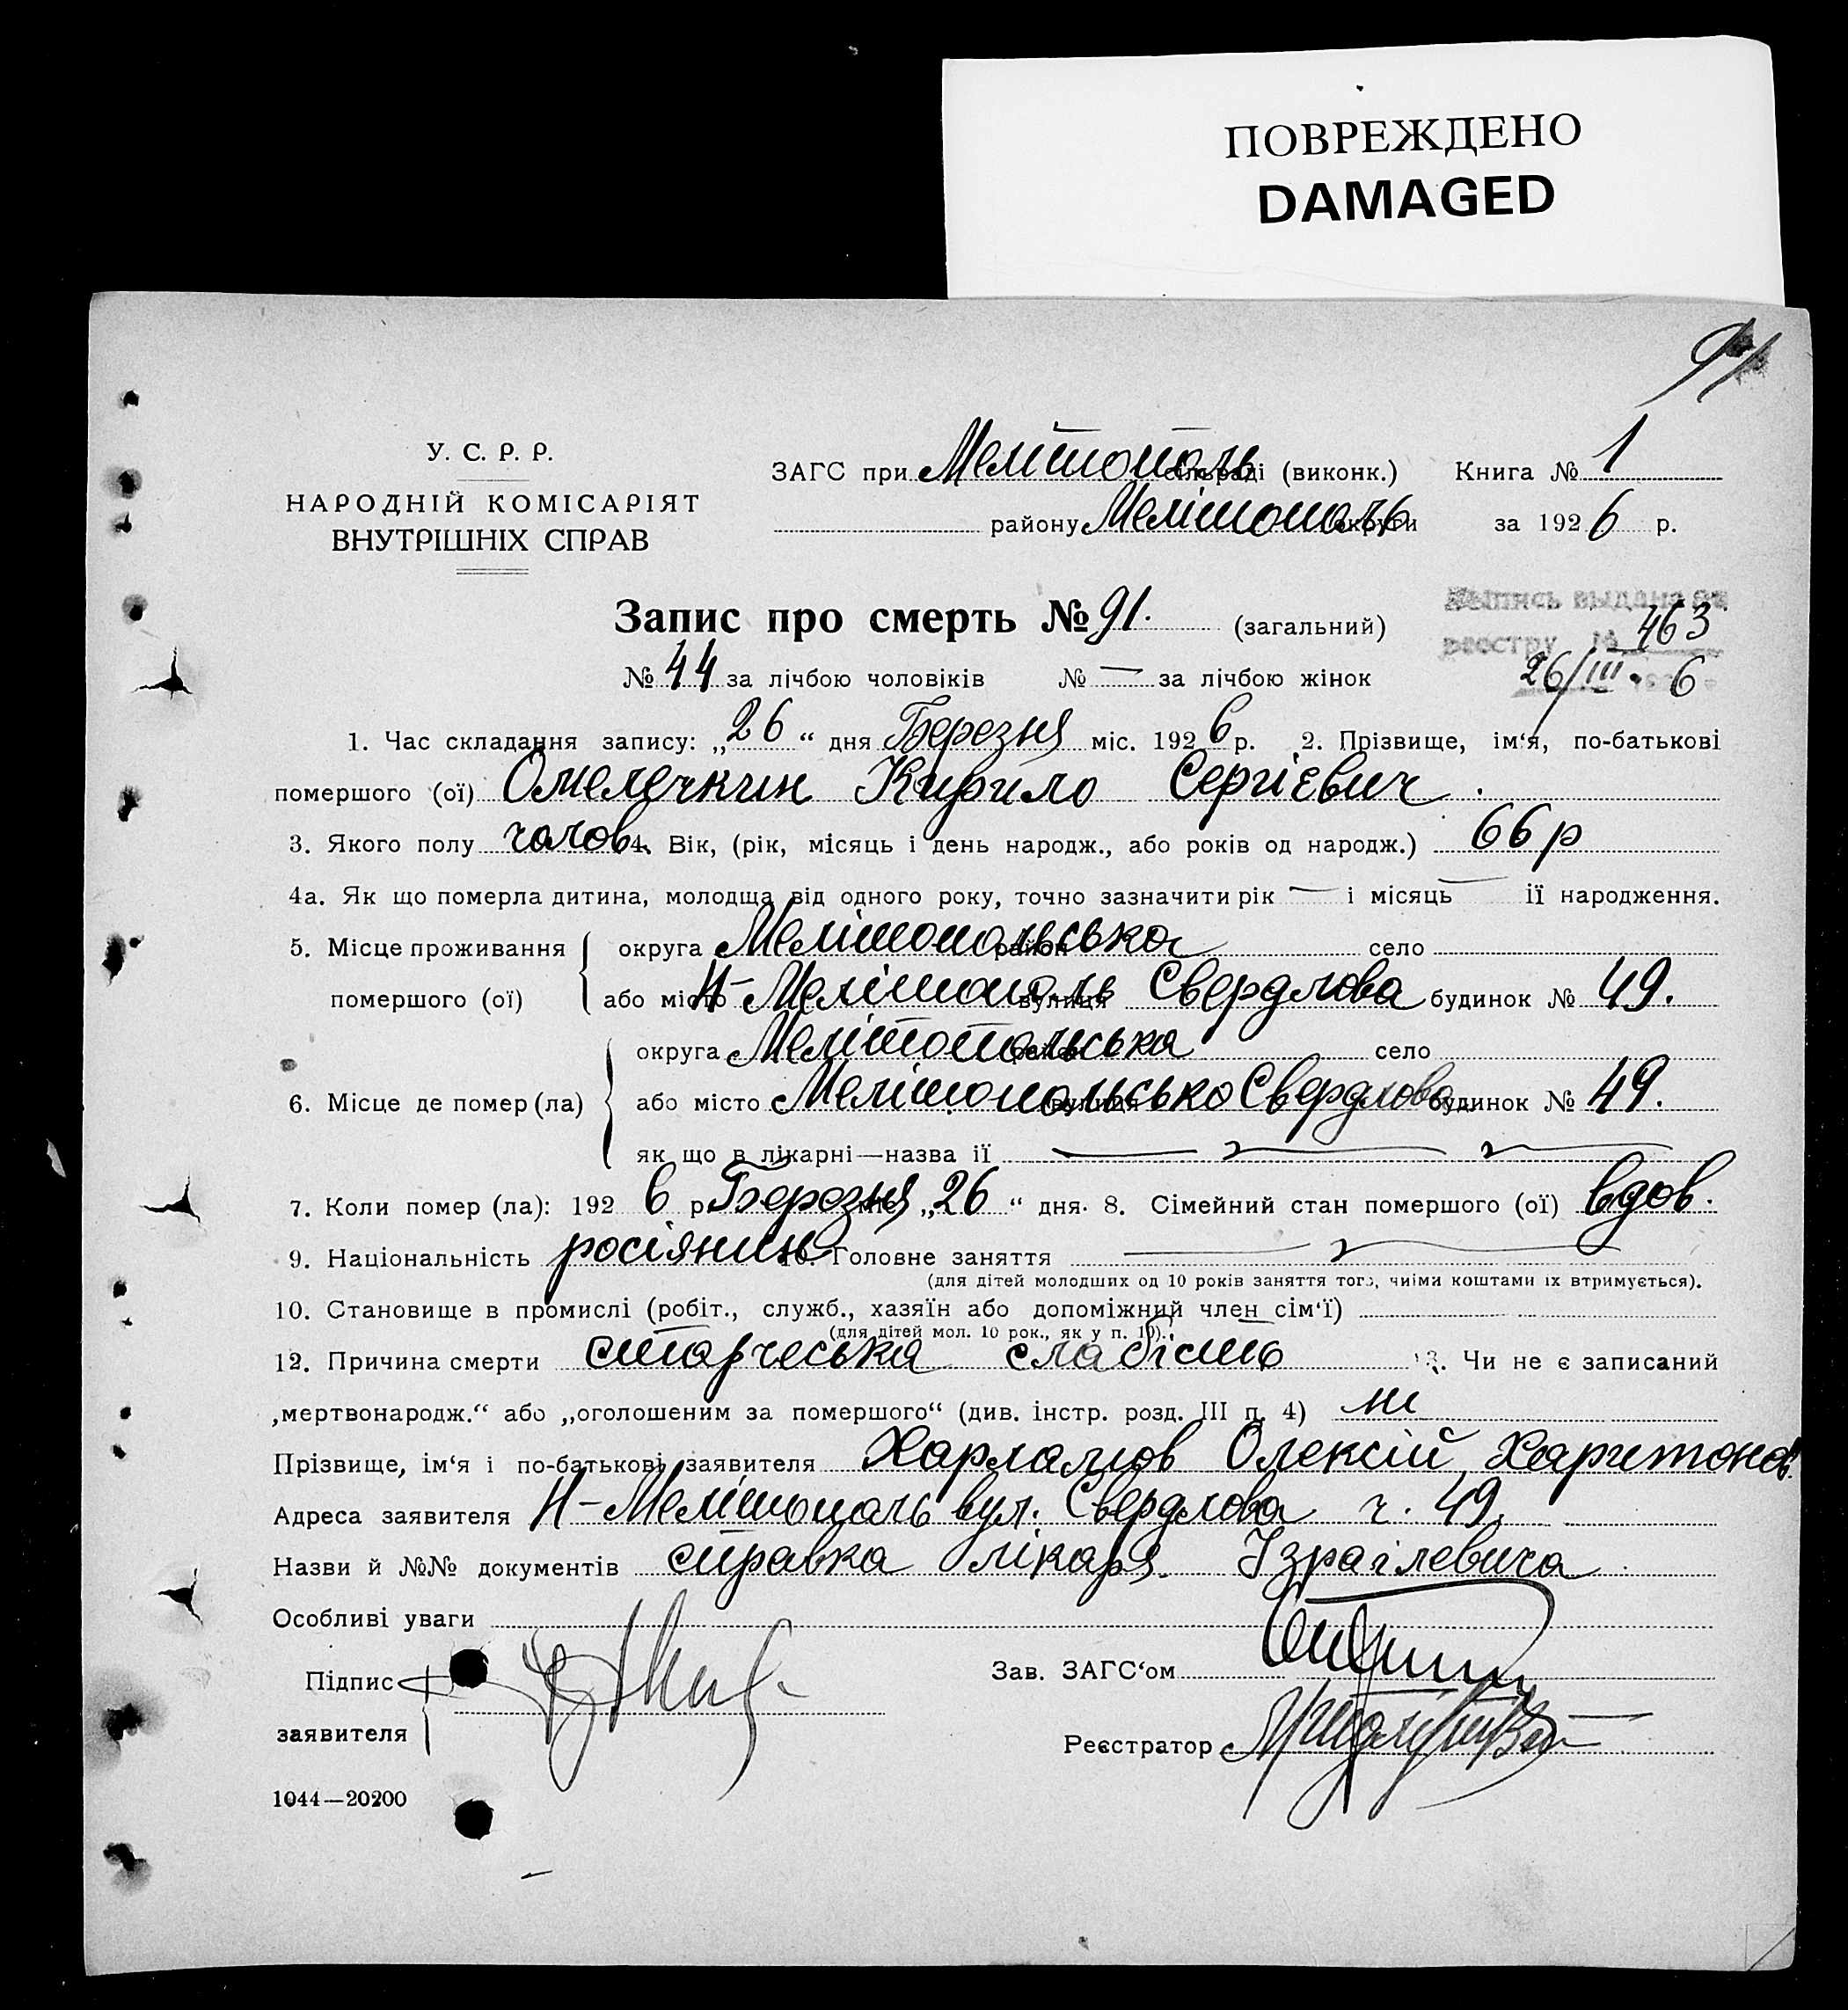 ПОВРЕЖДЕНО
DAMAGED
91
У. С. Р. Р.
НАРОДНІЙ КОМІСАРІЯТ
ВНУТРІШНІХ СПРАВ
ЗАГС при Мелітополь сільраді (виконк.) Книга № 1
району Мелітополь округи за 1926 р.
Запис про смерть № 91. (загальний)
Выпись выдана
реестру № 463
26/III 6
№ 44 за лічбою чоловіків № — за лічбою жінок
1. Час складання запису: „26“ дня Березня міс. 1926 р. 2. Прізвище, ім‘я, по-батькові
помершого (ої) Омелечкин Кирило Сергієвич.
3. Якого полу чолов. 4. Вік, (рік, місяць і день народж., або років од народж.) 66 р
4а. Як що померла дитина, молодща від одного року, точно зазначити рік — і місяць — її народження.
5. Місце проживання помершого (ої) округа Мелітопольська район село
або місто Н-Мелітополь вулиця Свердлова будинок № 49.
6. Місце де помер (ла) округа Мелітопольська район село
або місто Мелітопольсько вулиця Свердлова будинок № 49.
як що в лікарні—назва її —
7. Коли помер (ла): 1926 р. Березня міс. „26“ дня. 8. Сімейний стан помершого (ої) вдов.
9. Національність росіянин 10. Головне заняття —
(для дітей молодших од 10 років заняття того, чиїми коштами їх втримується).
10. Становище в промислі (робіт., служб., хазяїн або допоміжний член сім‘ї)
(для дітей мол. 10 рок., як у п. 10).
12. Причина смерти старчеська слабість 13. Чи не є записаний
„мертвонародж.“ або „оголошеним за помершого“ (див. інстр. розд. III п. 4) ні
Прізвище, ім‘я і по-батькові заявителя Харламов Олексій Харитонов.
Адреса заявителя Н-Мелітополь вул. Свердлова ч. 49.
Назви й №№ документів справка лікаря Ізраілевича
Особливі уваги
Підпис заявителя
Зав. ЗАГС‘ом
Реєстратор
1044—20200